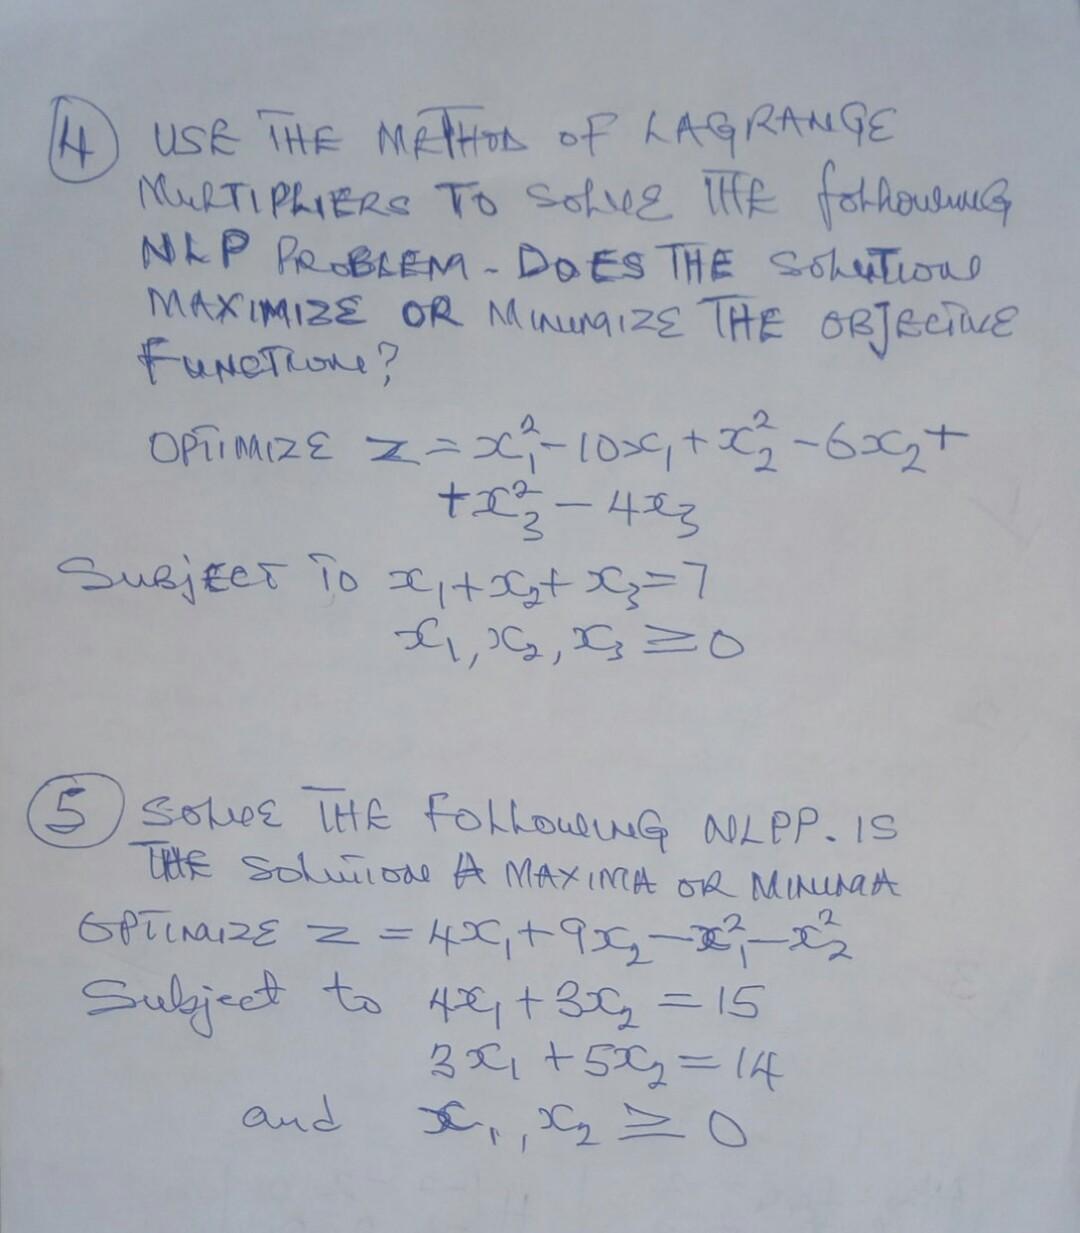 4 USE THE METHOD OF LAGRANGE
MULTIPLIERS TO SOLVE THE following
NLP PROBLEM - DOES THE SOLUTION
MAXIMIZE OR MINIMIZE THE OBJECTIVE
FUNCTION?
OPTIMIZE z = x₁² - 10x₁ + x₂² - 6x₂ +
+ x₃² - 4x₃
SUBJECT TO x₁ + x₂ + x₃ = 7
x₁, x₂, x₃ ≥ 0
5 SOLVE THE FOLLOWING NLPP. IS
THE SOLUTION A MAXIMA OR MINIMA
OPTIMIZE z = 4x₁ + 9x₂ - x₁² - x₂²
Subject to 4x₁ + 3x₂ = 15
3x₁ + 5x₂ = 14
and x₁, x₂ ≥ 0